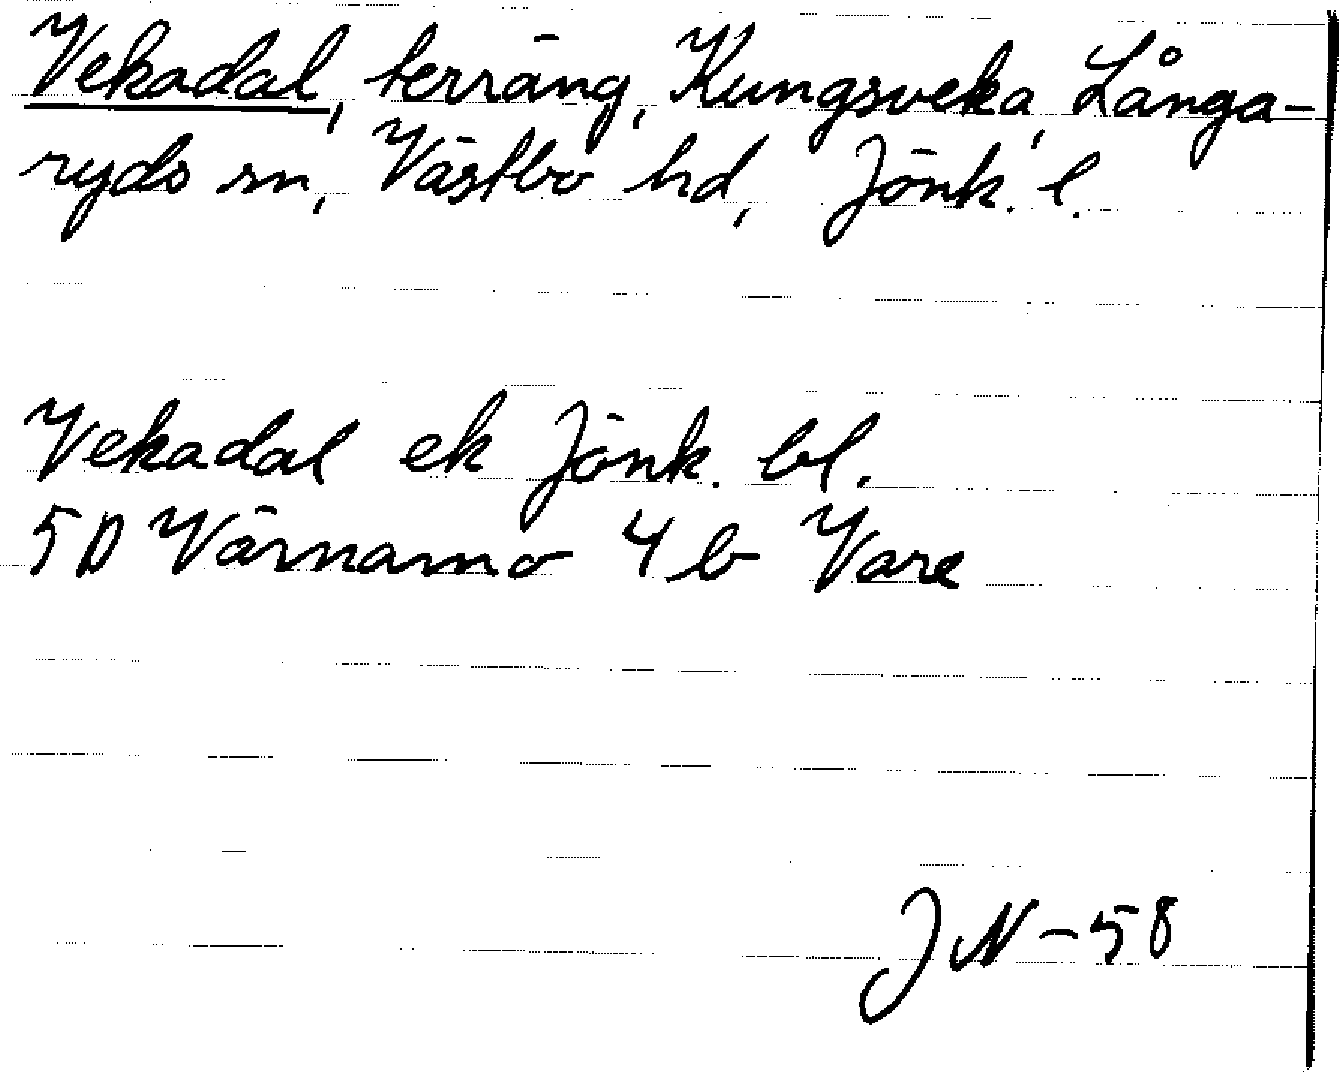 Vekadal, terräng, Kungsveka, Långa-
ryds sn, Västbo hd, Jönk. l.
Vekadal ek Jönk. bl.
5D Värnamo 4 b Vare
JN-58